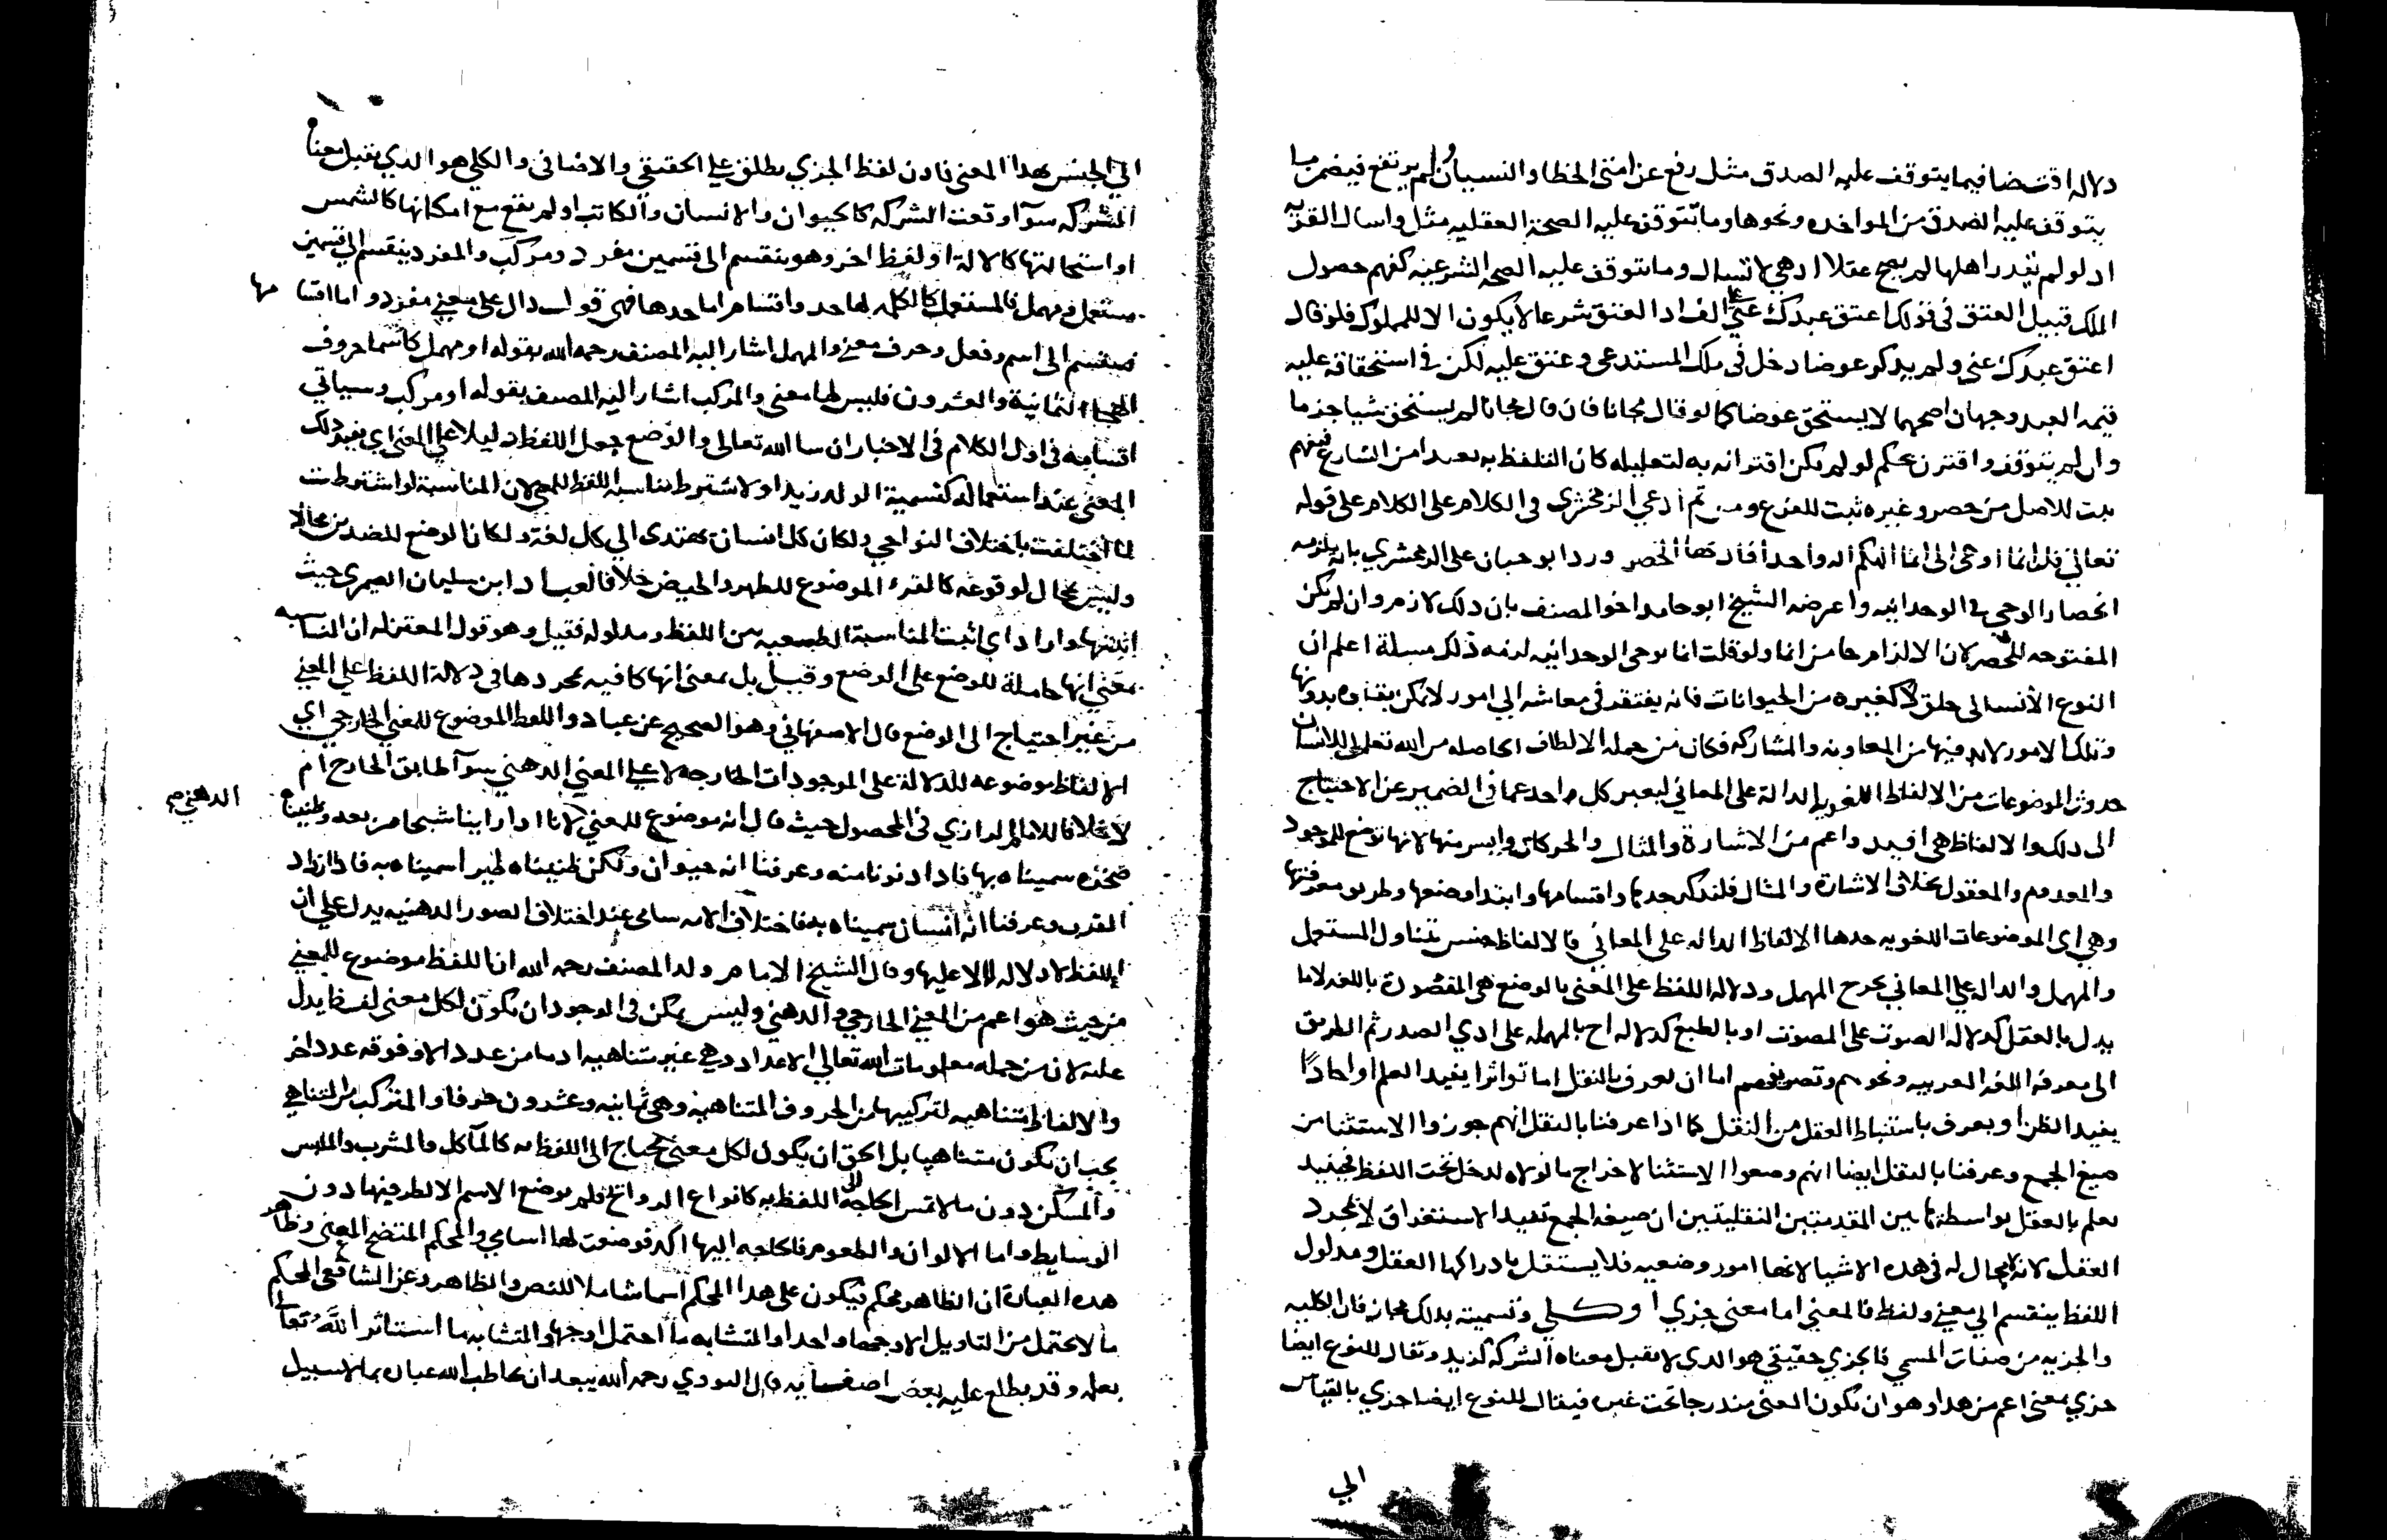 دلاله اقتضا فيما يتوقف عليه الصدق مثل رفع عن امتي الخطا والنسيان ولم يرتفع فيضمر ما
يتوقف عليه الصدق من المواخده ونحوها وما تتوقف عليه الصحة العقليه مثل واسال القريه
اد لو لم يقدر اهلها لم يصح عقلا اد هي لا تسال وما تتوقف عليه الصحه الشرعيه كفهم حصول
الملك قبيل العتق في قولك اعتق عبدك عني على الف اد العتق شرعا لا يكون الا للمملوك فلو قال
اعتق عبدك عني ولم يدكر عوضا دخل في ملك المستدعي وعتق عليه لكن في استحقاقه عليه
قيمه العبد وجهان اصحهما لا يستحق عوضا كما لو قال مجانا فان قال مجانا لم يستحق شيا جزما
وان لم يتوقف واقترن بحكم لو لم يكن اقترانه به لتعليله كان التلفظ به بعيدا من الشارع فيفهم
ثبت للاصل من حصر وغيره ثبت للفرع ومن ثم ادعي الزمخشري في الكلام على الكلام على قوله
تعالي قل انما اوحى الى انما الهكم اله واحد افادتها الحصر ورد ابو حيان على الزمخشري بانه يلزمه
انحصار الوحي في الوحدانيه واعرضه الشيخ ابو حامد اخو المصنف بان دلك لازم وان لم تكن
المفتوحه للحصر لان الالزام جا من انما ولو قلت انما يوحى الوحدانيه لزمه دلك مسيلة اعلم ان
النوع الانساني خلق لا كغيره من الحيوانات فانه يفتقر في معاشه الي امور لا يمكن بقاوه بدونها
وتلك الامور لا بد فيها من المعاونه والمشاركه فكان من جمله الالطاف الحاصله من الله تعالى للانسان
حدوث الموضوعات من الالفاظ اللغويه الدالة على المعاني ليعبر كل واحد عما في الضمير عن الاحتياج
الى دلك والالفاظ هي افيد واعم من الاشارة والمثال والحركات وايسر منها لانها توضع للموجود
والمعدوم والمعقول بخلاف الاشارة والمثال فلندكر حدها واقسامها وابتدا وضعها وطريق معرفتها
وهي اى الموضوعات اللغويه حدها الالفاظ الداله على المعاني فالالفاظ جنس يتناول المستعمل
والمهمل والداله علي المعاني يخرج المهمل ودلاله اللفظ على المعنى بالوضع هى المقصودة باللغه لا ما
يدل بالعقل كدلاله الصوت على المصوت او بالطبع كدلاله اح بالمهمله على ادي الصدر ثم الطريق
الى معرفه اللغه العربيه ونحوهم وتصريفهم اما ان تعرف بالنقل اما تواترا يفيد العلم او احادا
يفيد الظن او يعرف باستنباط العقل من النقل كما ادا عرفنا بالنقل انهم جوزوا الاستثنا من
صيغ الجمع وعرفنا بالنقل ايضا انهم وضعوا الاستثنا لاخراج ما لولاه لدخل تحت اللفظ فحينيد
نعلم بالعقل بواسطة هاتين المقدمتين النقليتين ان صيغه الجمع تفيد الاستغراق لا مجرد
العقل لانه لا مجال له فى هده الاشيا لانها امور وضعيه فلا يستقل بادراكها العقل ومدلول
اللفظ ينقسم الي معني ولفظ فالمعني اما معنى جزي او كلي وتسميته بدلك مجاز فان الكليه
والجزيه من صفات المسمى فالجزي حقيقي هو الدي لا يقبل معناه الشركه كزيد وتقال للنوع ايضا
جزي بمعنى اعم من هدا وهو ان يكون المعنى مندرجا تحت غيره فيقال للنوع ايضا جزي بالقياس
الي
الي الجنس بهدا المعنى فادن لفظ الجزي يطلق علي الحقيقي والاضافي والكلي هو الدي يقبل معناه
الشركه سوآ وقعت الشركه كالحيوان والانسان والكاتب او لم تقع مع امكانها كالشمس
او استحالتها كالالة او لفظ اخر وهو ينقسم الى قسمين مفرد ومركب والمفرد ينقسم الي قسمين
مستعمل ومهمل فالمستعمل كالكلمه لها حد واقسام اما حدها فهي قول دال على معني مفرد واما اقسامها
فينقسم الى اسم وفعل وحرف معنى والمهمل اشار اليه المصنف رحمه الله بقوله او مهمل كاسما حروف
الهجا الثمانية والعشرون فليس لها معنى والمركب اشار اليه المصنف بقوله او مركب وسياتي
اقسامه في اول الكلام فى الاخبار ان سا الله تعالى والوضع جعل اللفظ دليلا علي المعنى اي يفيد دلك
المعنى عند استعماله كتسمية الولد زيدا ولا تشترط مناسبه اللفظ للمعنى لان المناسبة لو اشترطت
لما اختلفت باختلاف النواحي ولكان كل انسان يهتدى الي كل لغة ولكان الوضع للضدين محالا
وليس بمحال لوقوعه كالقرء الموضوع للطهر والحيض خلافا لعباد ابن سليمان الصيمري حيث
اثبتها واراد اي اثبت المناسبة الطبيعيه بين اللفظ ومدلوله فقيل وهو قول المعتزله ان المناسبه
بمعني انها حاملة للوضع على الوضع وقيل بل بمعنى انها كافيه بمجردها في دلالة اللفظ علي المعني
من غير احتياج الى الوضع قال الاصفهاني وهو الصحيح عن عباد واللفظ الموضوع للمعني الخارجي اي
الالفاظ موضوعه للدلالة على الموجودات الخارجه لا علي المعني الدهني سوآ طابق الخارج ام
لا خلافا للامام الرازي في المحصول حيث قال انه موضوع للمعني الدهني صح لانا ادا راينا شبحا من بعد وظنناه
صخره سميناه بها فادا دنونا منه وعرفنا انه حيوان ولكن ظنيناه طيرا سميناه به فادا زاد
القرب وعرفنا انه انسان سميناه به فاختلاف الاسامى عند اختلاف الصور الدهنيه يدل علي ان
اللفظ لا دلاله له الا عليها وقال الشيخ الامام ولد المصنف رحمه الله ان اللفظ موضوع للمعني
من حيث هو اعم من المعني الخارجي والدهني وليس يمكن فى الوجود ان يكون لكل معنى لفظ يدل
عليه لان من جمله معلومات الله تعالي الاعداد وهي غير متناهيه اد ما من عدد الا وفوقه عدد اخر
والالفاظ متناهيه لتركيبها من الحروف المتناهيه وهى ثمانيه وعشرون حرفا والمتركب من المتناهي
يجب ان يكون متناهيا بل الحق ان يكون لكل معنى محتاج الى اللفظ به كالمآكل والمشرب والملبس
والمسكن دون ما لا تمس الحاجه الى اللفظ به كانواع الروايح فلم يوضع الاسم الا لطرفيها دون
الوسايط واما الالوان والطعوم فالحاجه اليها اكد فوضعت لها اسامي والمحكم المتضح المعنى وظاهر
هده العبارة ان الظاهر محكم فيكون على هدا المحكم اسما شاملا للنص والظاهر وعن الشافعي المحكم
ما لا يحتمل من التاويل الا وجها واحدا والمتشابه ما احتمل اوجها والمتشابه ما استاثر الله تعالى
بعلمه وقد يطلع عليه بعض اصفيايه قال النووي رحمه الله يبعد ان يخاطب الله عباده بما لا سبيل